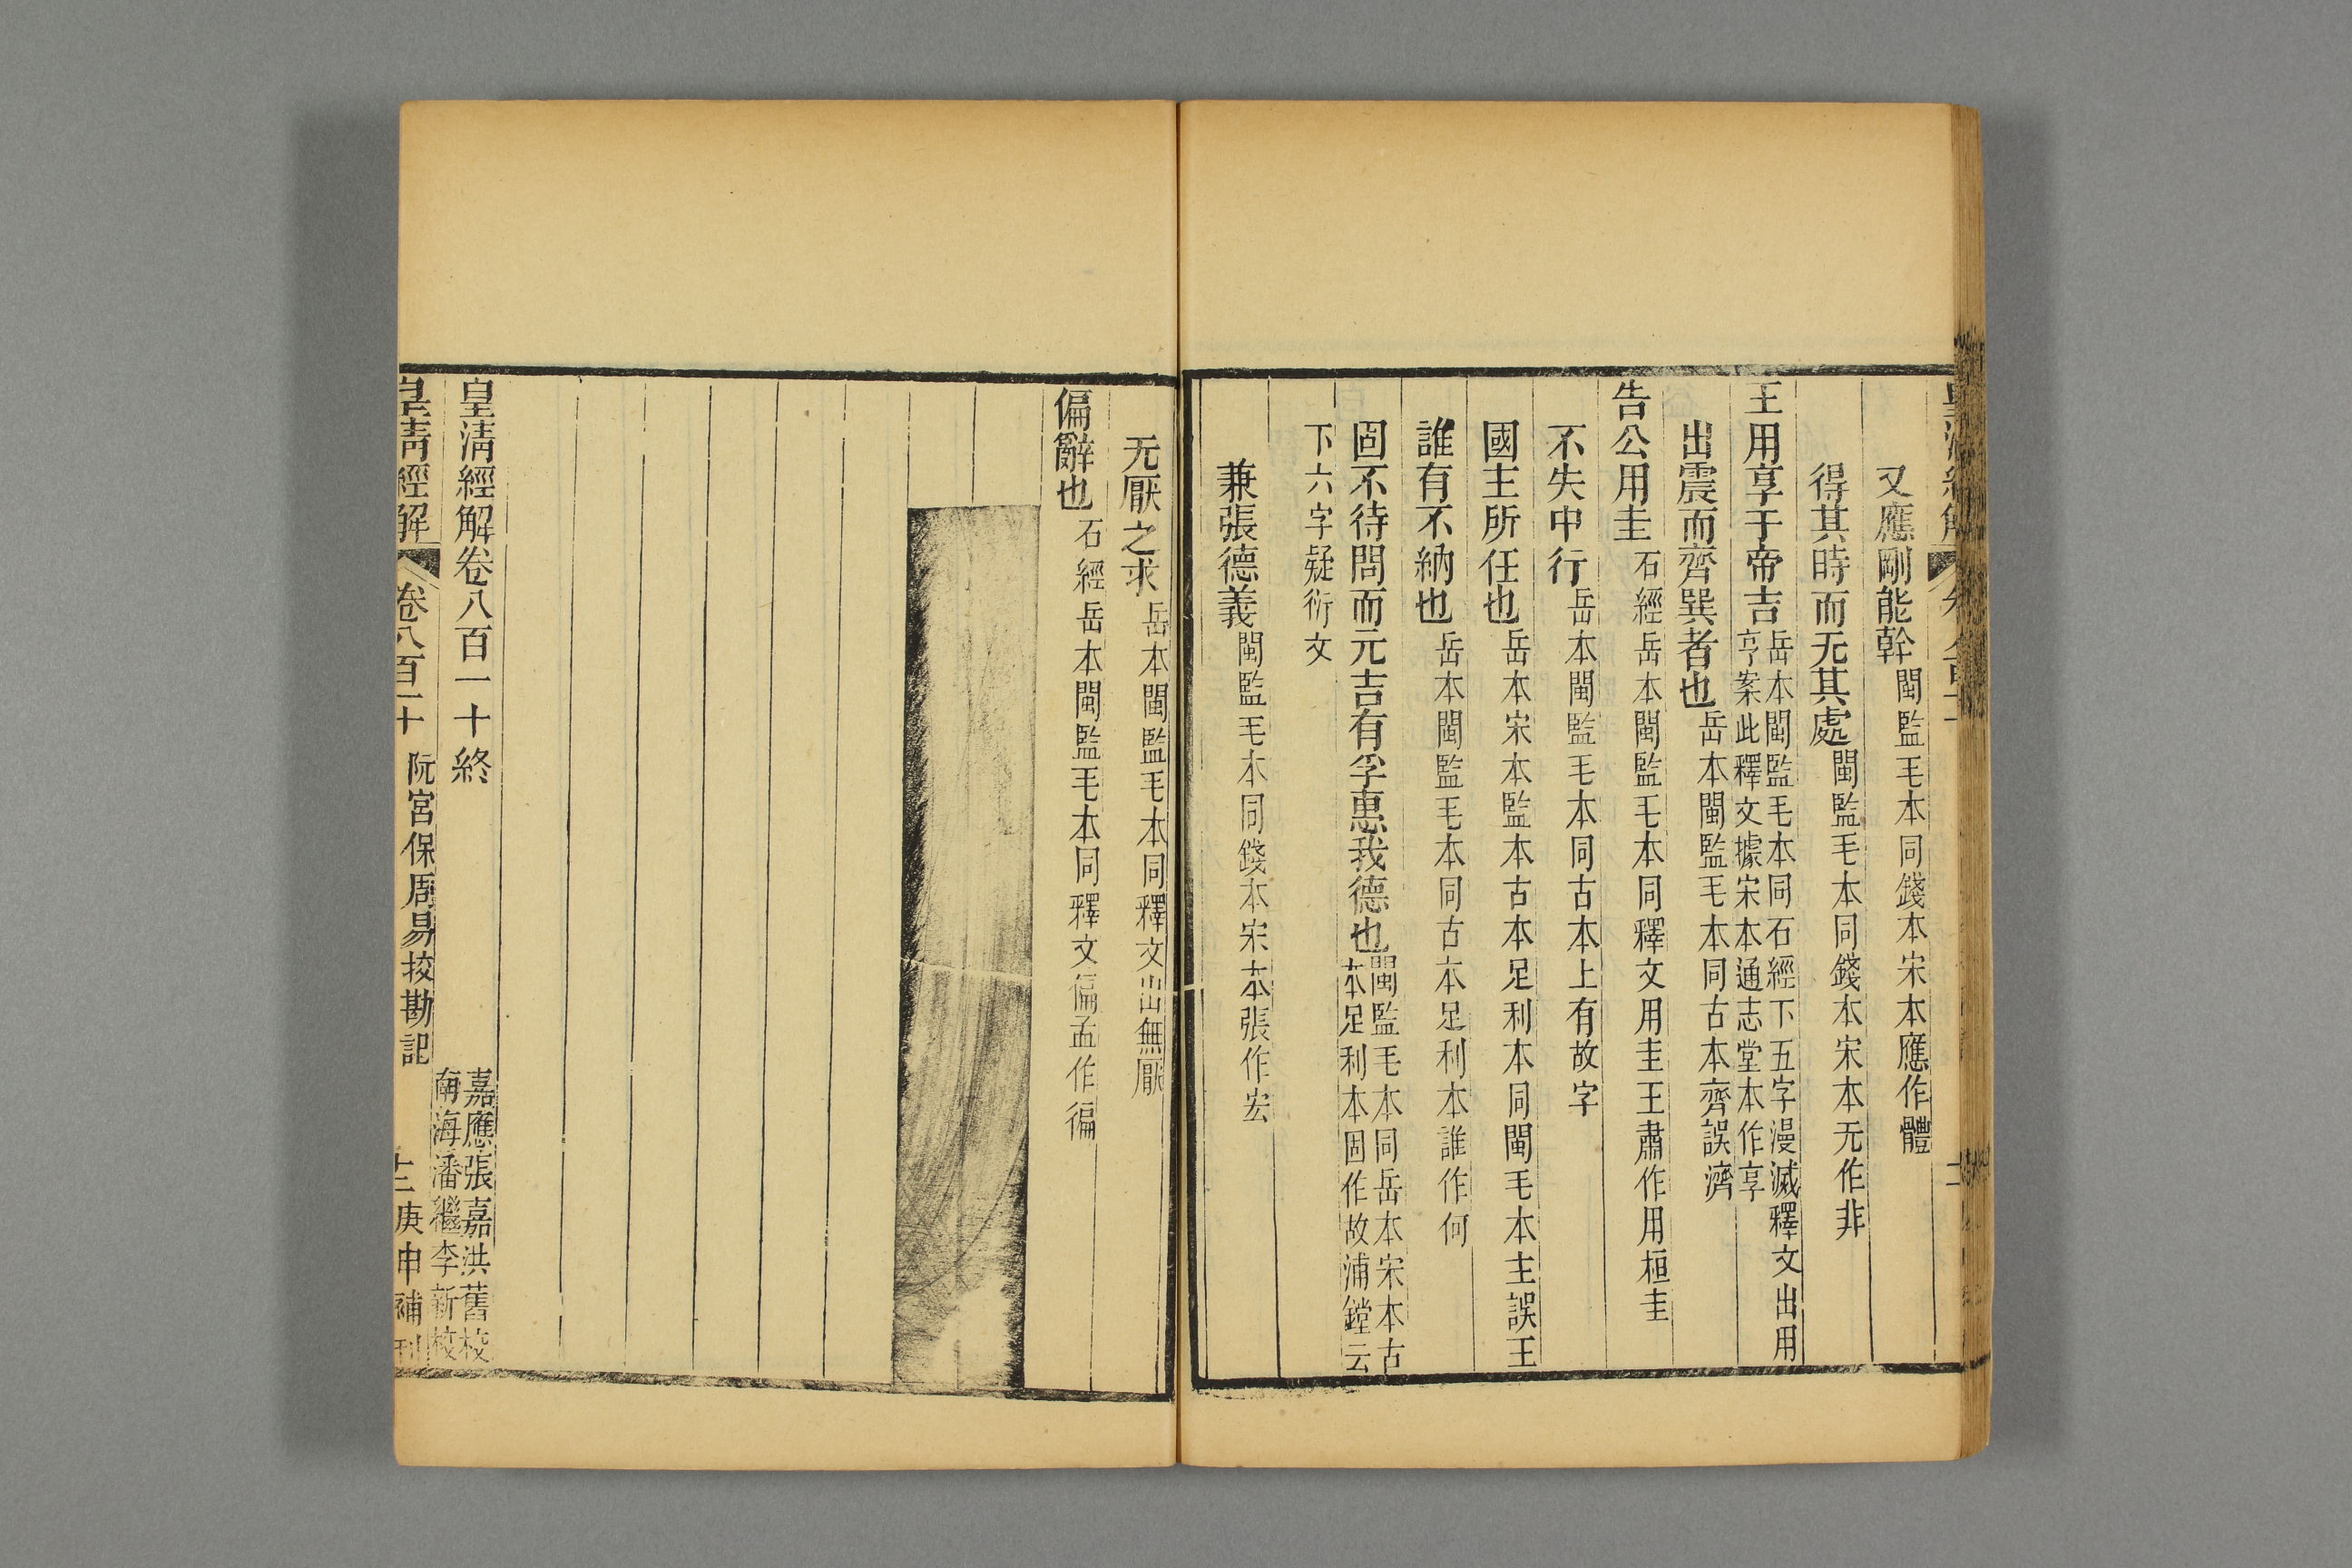 又應剛能幹閩監毛本同錢本宋本應作體
得其時而无其處閩監毛本同錢本宋本无作非
王用享于帝吉岳本閩監毛本同石經下五字漫滅釋文出用
亨案此釋文據宋本通志堂本作享
出震而齊巽者也岳本閩監毛本同古本齊誤濟
告公用圭石經岳本閩監毛本同釋文用圭王肅作用桓圭
不失中行岳本閩監毛本同古本上有故字
國主所任也岳本宋本監本古本足利本同閩毛本主誤王
誰有不納也岳本閩監毛本同古本足利本誰作何
固不待問而元吉有孚惠我德也閩監毛本同岳本宋本古
本足利本固作故浦鏜云
下六字疑衍文
兼張德義閩監毛本同錢本宋本張作宏
无厭之求岳本閩監毛本同釋文出無厭
偏辭也石經岳本閩監毛本同釋文偏孟作徧
皇淸經解卷八百一十終
嘉應張嘉洪舊校
南海潘繼李新校
皇淸經解
卷八百一十
阮宮保周易挍勘記
庚申補刊